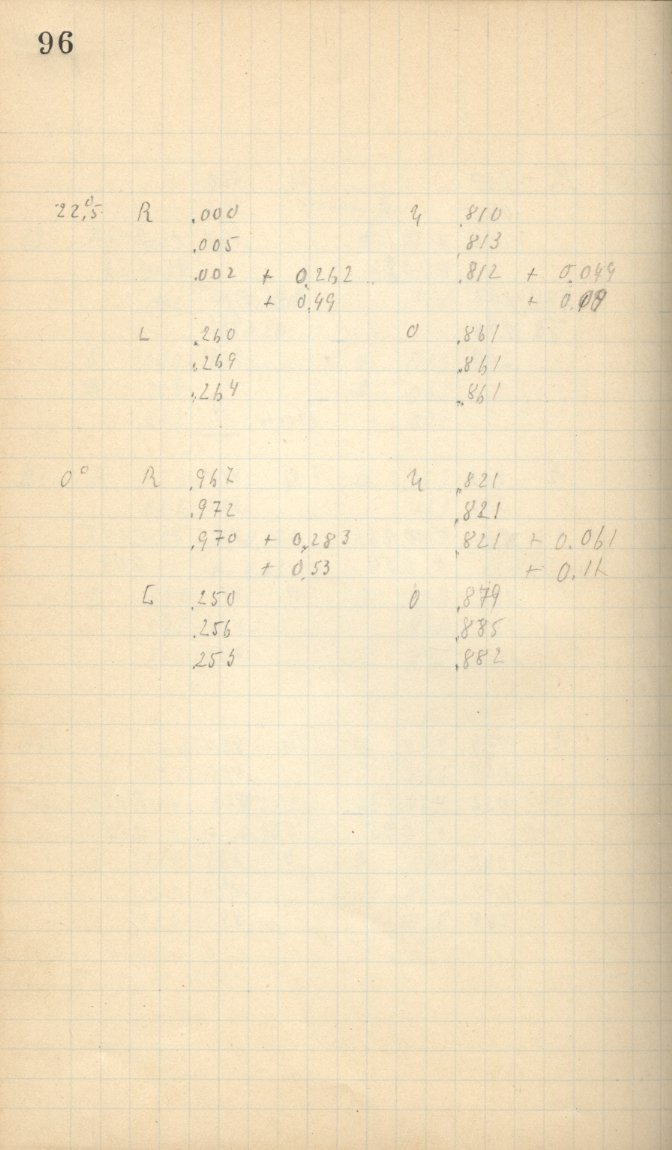 96
22,5° R .000 U .810
.005 .813
.002 + 0,262 .812 + 0.049
+ 0,49 + 0.09
L .260 O .861
.269 .861
.264 .861
0° R .967 U .821
.972 .821
.970 + 0,283 .821 + 0.061
+ 0,53 + 0.11
L .250 O .879
.256 .885
.253 .882